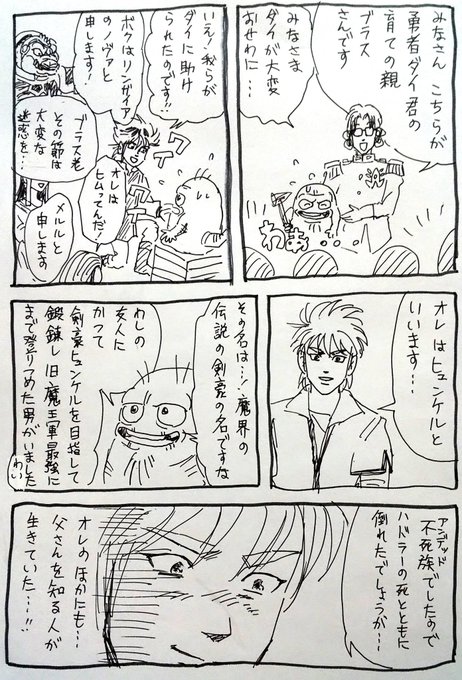 みなさん こちらが
勇者ダイ君の
育ての親
ブラス
さんです
みなさま
ダイが大変
おせわに…
わあ…
いえ!我らが
ダイに助け
られたのです!!
ボクはリンガイア
のノヴァと
申します!
ワイ
ワイ
オレは
ヒムってんだ!
ブラス老
その節は
大変な
迷惑を…
メルルと
申します
オレはヒュンケルと
いいます…
その名は…!魔界の
伝説の剣豪の名ですな
わしの
友人に
かつて
剣豪ヒュンケルを目指して
鍛錬し旧魔王軍最強に
まで登りつめた男がいました
わい
アンデッド
不死族でしたので
ハドラーの死とともに
倒れたでしょうが…
オレのほかにも…
父さんを知る人が
生きていた…!!